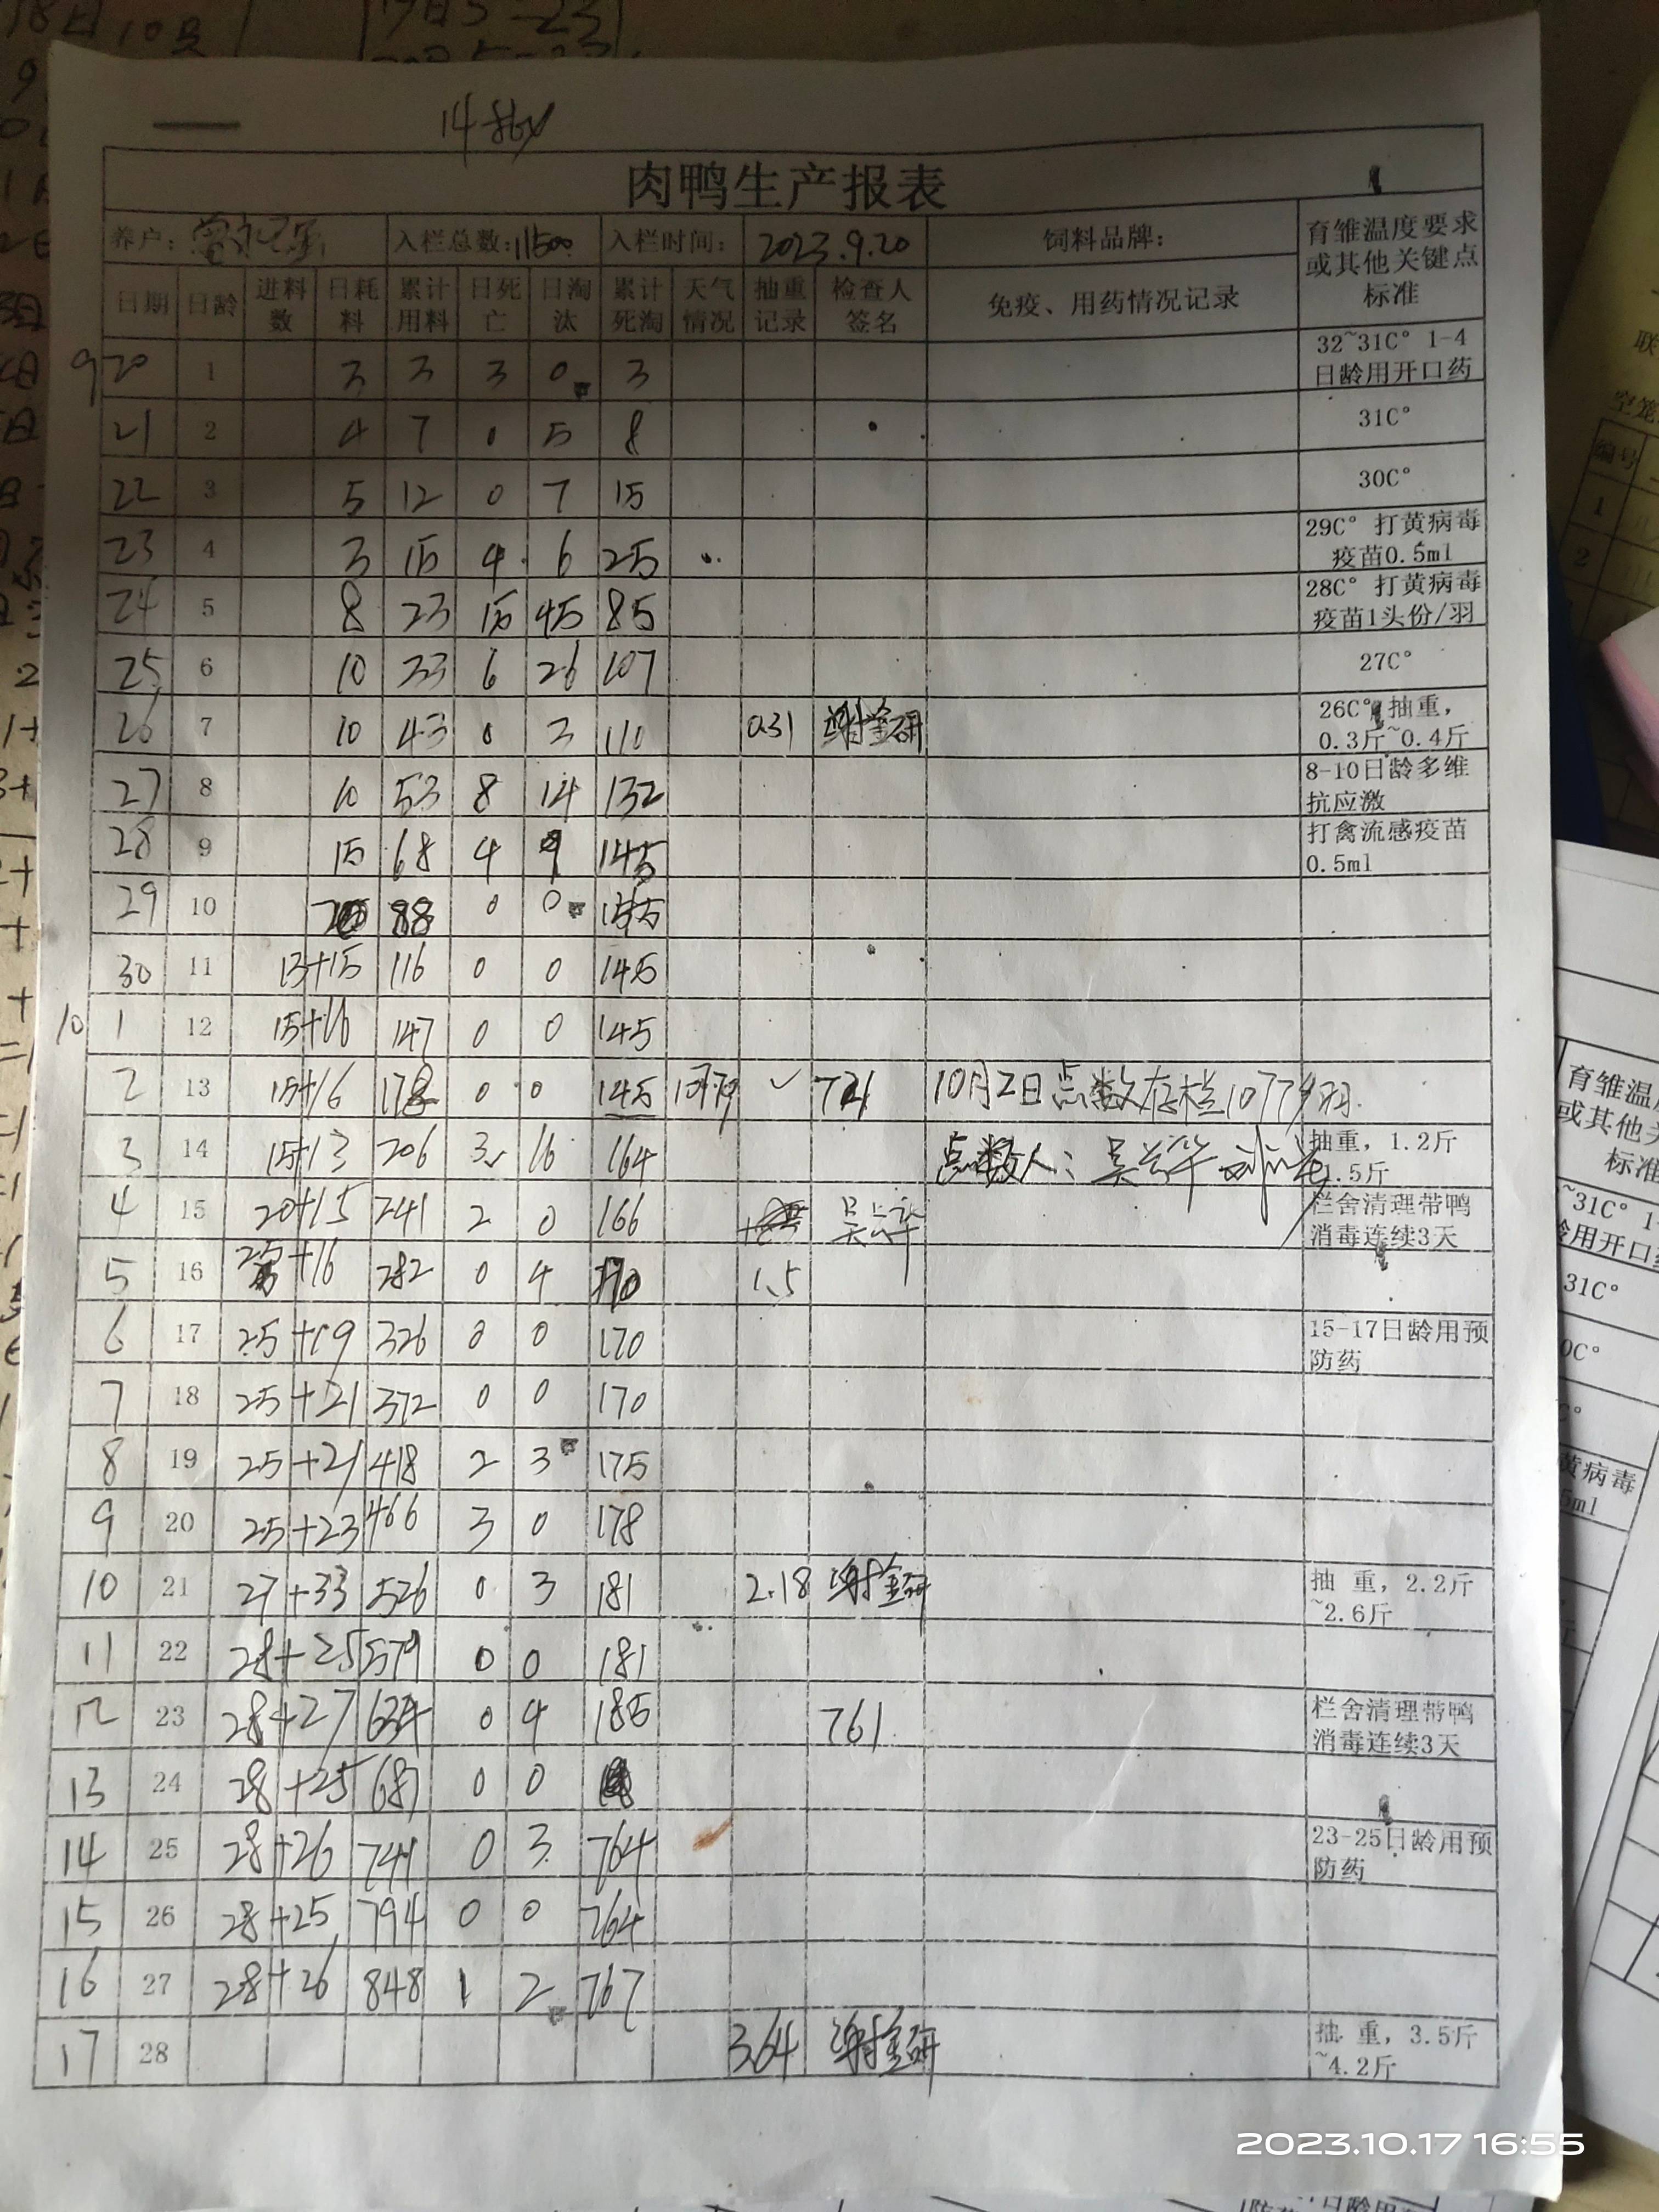 肉鸭生产报表
养户: 入栏总数:11500 入栏时间: 2023.9.20 饲料品牌: 育雏温度要求或其他关键点标准
日期 日龄 进料数 日耗料 累计用料 日死亡 日淘汰 累计死淘 天气情况 抽重记录 检查人签名 免疫、用药情况记录
9 20 1 3 3 3 0 3 32~31C° 1-4日龄用开口药
21 2 4 7 0 5 8 31C°
22 3 5 12 0 7 15 30C°
23 4 3 15 4 6 25 29C° 打黄病毒疫苗0.5ml
24 5 8 23 15 45 85 28C° 打黄病毒疫苗1头份/羽
25 6 10 33 6 26 107 27C°
26 7 10 43 0 3 110 0.31 谢金研 26C° 抽重,0.3斤~0.4斤
27 8 10 53 8 14 132 8-10日龄多维抗应激
28 9 15 68 4 9 145 打禽流感疫苗0.5ml
29 10 20 88 0 0 145
30 11 13+15 116 0 0 145
10 1 12 15+16 147 0 0 145
2 13 15+16 178 0 0 145 721 10月2日点数存栏10779羽.
3 14 15+13 206 3 16 164 点数人: 抽重, 1.2斤 1.5斤
4 15 20+15 241 2 0 166 栏舍清理带鸭消毒连续3天
5 16 25+16 282 0 4 170 1.5
6 17 25+19 326 0 0 170 15-17日龄用预防药
7 18 25+21 372 0 0 170
8 19 25+21 418 2 3 175
9 20 25+23 466 3 0 178
10 21 27+33 526 0 3 181 2.18 谢金研 抽 重, 2.2斤~2.6斤
11 22 28+25 579 0 0 181
12 23 28+27 634 0 4 185 761 栏舍清理带鸭消毒连续3天
13 24 28+25 687 0 0
14 25 28+26 741 0 3 764 23-25日龄用预防药
15 26 28+25 794 0 0 764
16 27 28+26 848 1 2 767
17 28 3.64 谢金研 抽 重, 3.5斤~4.2斤
2023.10.17 16:55